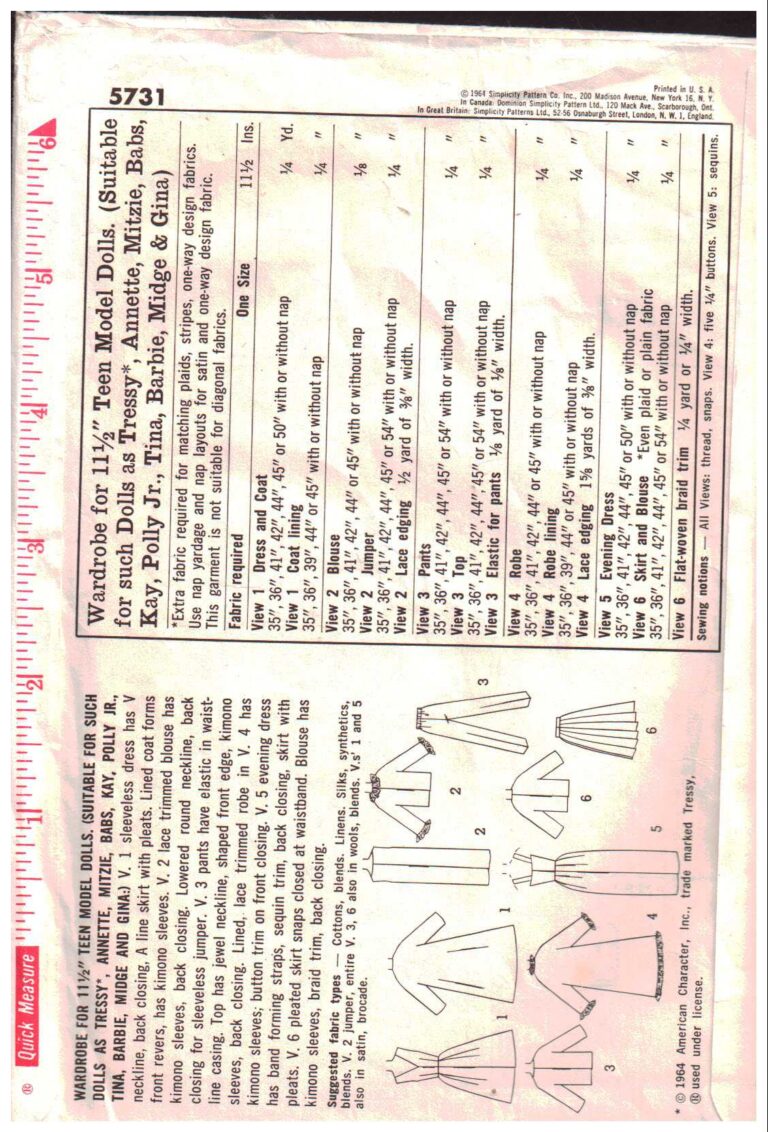 5731
© 1964 Simplicity Pattern Co. Inc., 200 Madison Avenue, New York 16, N. Y. Printed in U. S. A.
In Canada: Dominion Simplicity Pattern Ltd., 120 Mack Ave., Scarborough, Ont.
In Great Britain: Simplicity Patterns Ltd., 52-56 Osnaburgh Street, London, N. W. 1, England.
® Quick Measure 1 2 3 4 5 6
WARDROBE FOR 11½" TEEN MODEL DOLLS. (SUITABLE FOR SUCH
DOLLS AS TRESSY*, ANNETTE, MITZIE, BABS, KAY, POLLY JR.,
TINA, BARBIE, MIDGE AND GINA:) V. 1 sleeveless dress has V
neckline, back closing, A line skirt with pleats. Lined coat forms
front revers, has kimono sleeves. V. 2 lace trimmed blouse has
kimono sleeves, back closing. Lowered round neckline, back
closing for sleeveless jumper. V. 3 pants have elastic in waist-
line casing. Top has jewel neckline, shaped front edge, kimono
sleeves, back closing. Lined, lace trimmed robe in V. 4 has
kimono sleeves; button trim on front closing. V. 5 evening dress
has band forming straps, sequin trim, back closing, skirt with
pleats. V. 6 pleated skirt snaps closed at waistband. Blouse has
kimono sleeves, braid trim, back closing.
Suggested fabric types — Cottons, blends. Linens. Silks, synthetics,
blends. V. 2 jumper, entire V. 3, 6 also in wools, blends. V.s' 1 and 5
also in satin, brocade.
1 1 2 2 3
3 4 5 6 6
* © 1964 American Character, Inc., trade marked Tressy,
® used under license.
Wardrobe for 11½" Teen Model Dolls. (Suitable
for such Dolls as Tressy*, Annette, Mitzie, Babs,
Kay, Polly Jr., Tina, Barbie, Midge & Gina)
*Extra fabric required for matching plaids, stripes, one-way design fabrics.
Use nap yardage and nap layouts for satin and one-way design fabric.
This garment is not suitable for diagonal fabrics.
Fabric required One Size 11½ Ins.
View 1 Dress and Coat
35", 36", 41", 42", 44", 45" or 50" with or without nap ¼ Yd.
View 1 Coat lining
35", 36", 39", 44" or 45" with or without nap ¼ "
View 2 Blouse
35", 36", 41", 42", 44" or 45" with or without nap ⅛ "
View 2 Jumper
35", 36", 41", 42", 44", 45" or 54" with or without nap ¼ "
View 2 Lace edging ½ yard of ⅜" width.
View 3 Pants
35", 36", 41", 42", 44", 45" or 54" with or without nap ¼ "
View 3 Top
35", 36", 41", 42", 44", 45" or 54" with or without nap ¼ "
View 3 Elastic for pants ⅛ yard of ⅛" width.
View 4 Robe
35", 36", 41", 42", 44" or 45" with or without nap ¼ "
View 4 Robe lining
35", 36", 39", 44" or 45" with or without nap ¼ "
View 4 Lace edging 1⅝ yards of ⅜" width.
View 5 Evening Dress
35", 36", 41", 42", 44", 45" or 50" with or without nap ¼ "
View 6 Skirt and Blouse *Even plaid or plain fabric
35", 36", 41", 42", 44", 45" or 54" with or without nap ¼ "
View 6 Flat-woven braid trim ¼ yard or ¼" width.
Sewing notions — All Views: thread, snaps. View 4: five ¼" buttons. View 5: sequins.